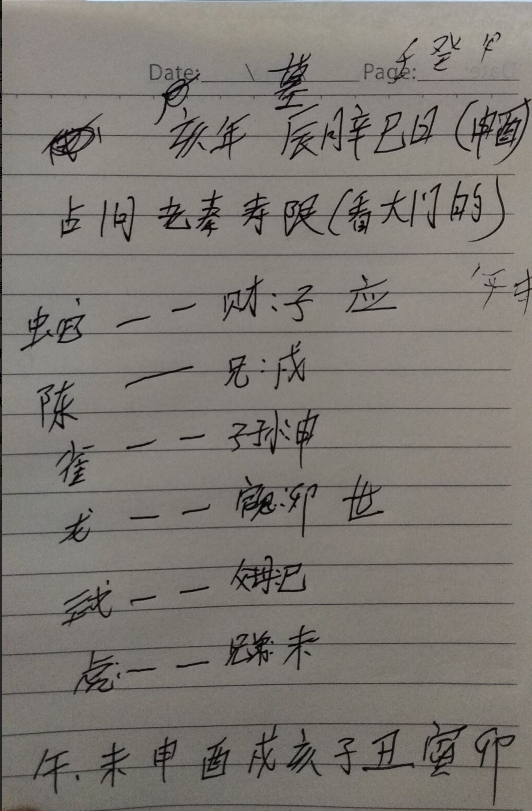 Date: \ 墓 Page:
亥年 辰月辛巳日(申酉)
占问 老秦寿限(看大门的)
蛇 -- 财:子 应
陈 — 兄:戌
雀 -- 子孙:申
龙 -- 官鬼:卯 世
武 -- 父母:巳
虎:-- 兄弟:未
午.未申酉戌亥子丑寅卯